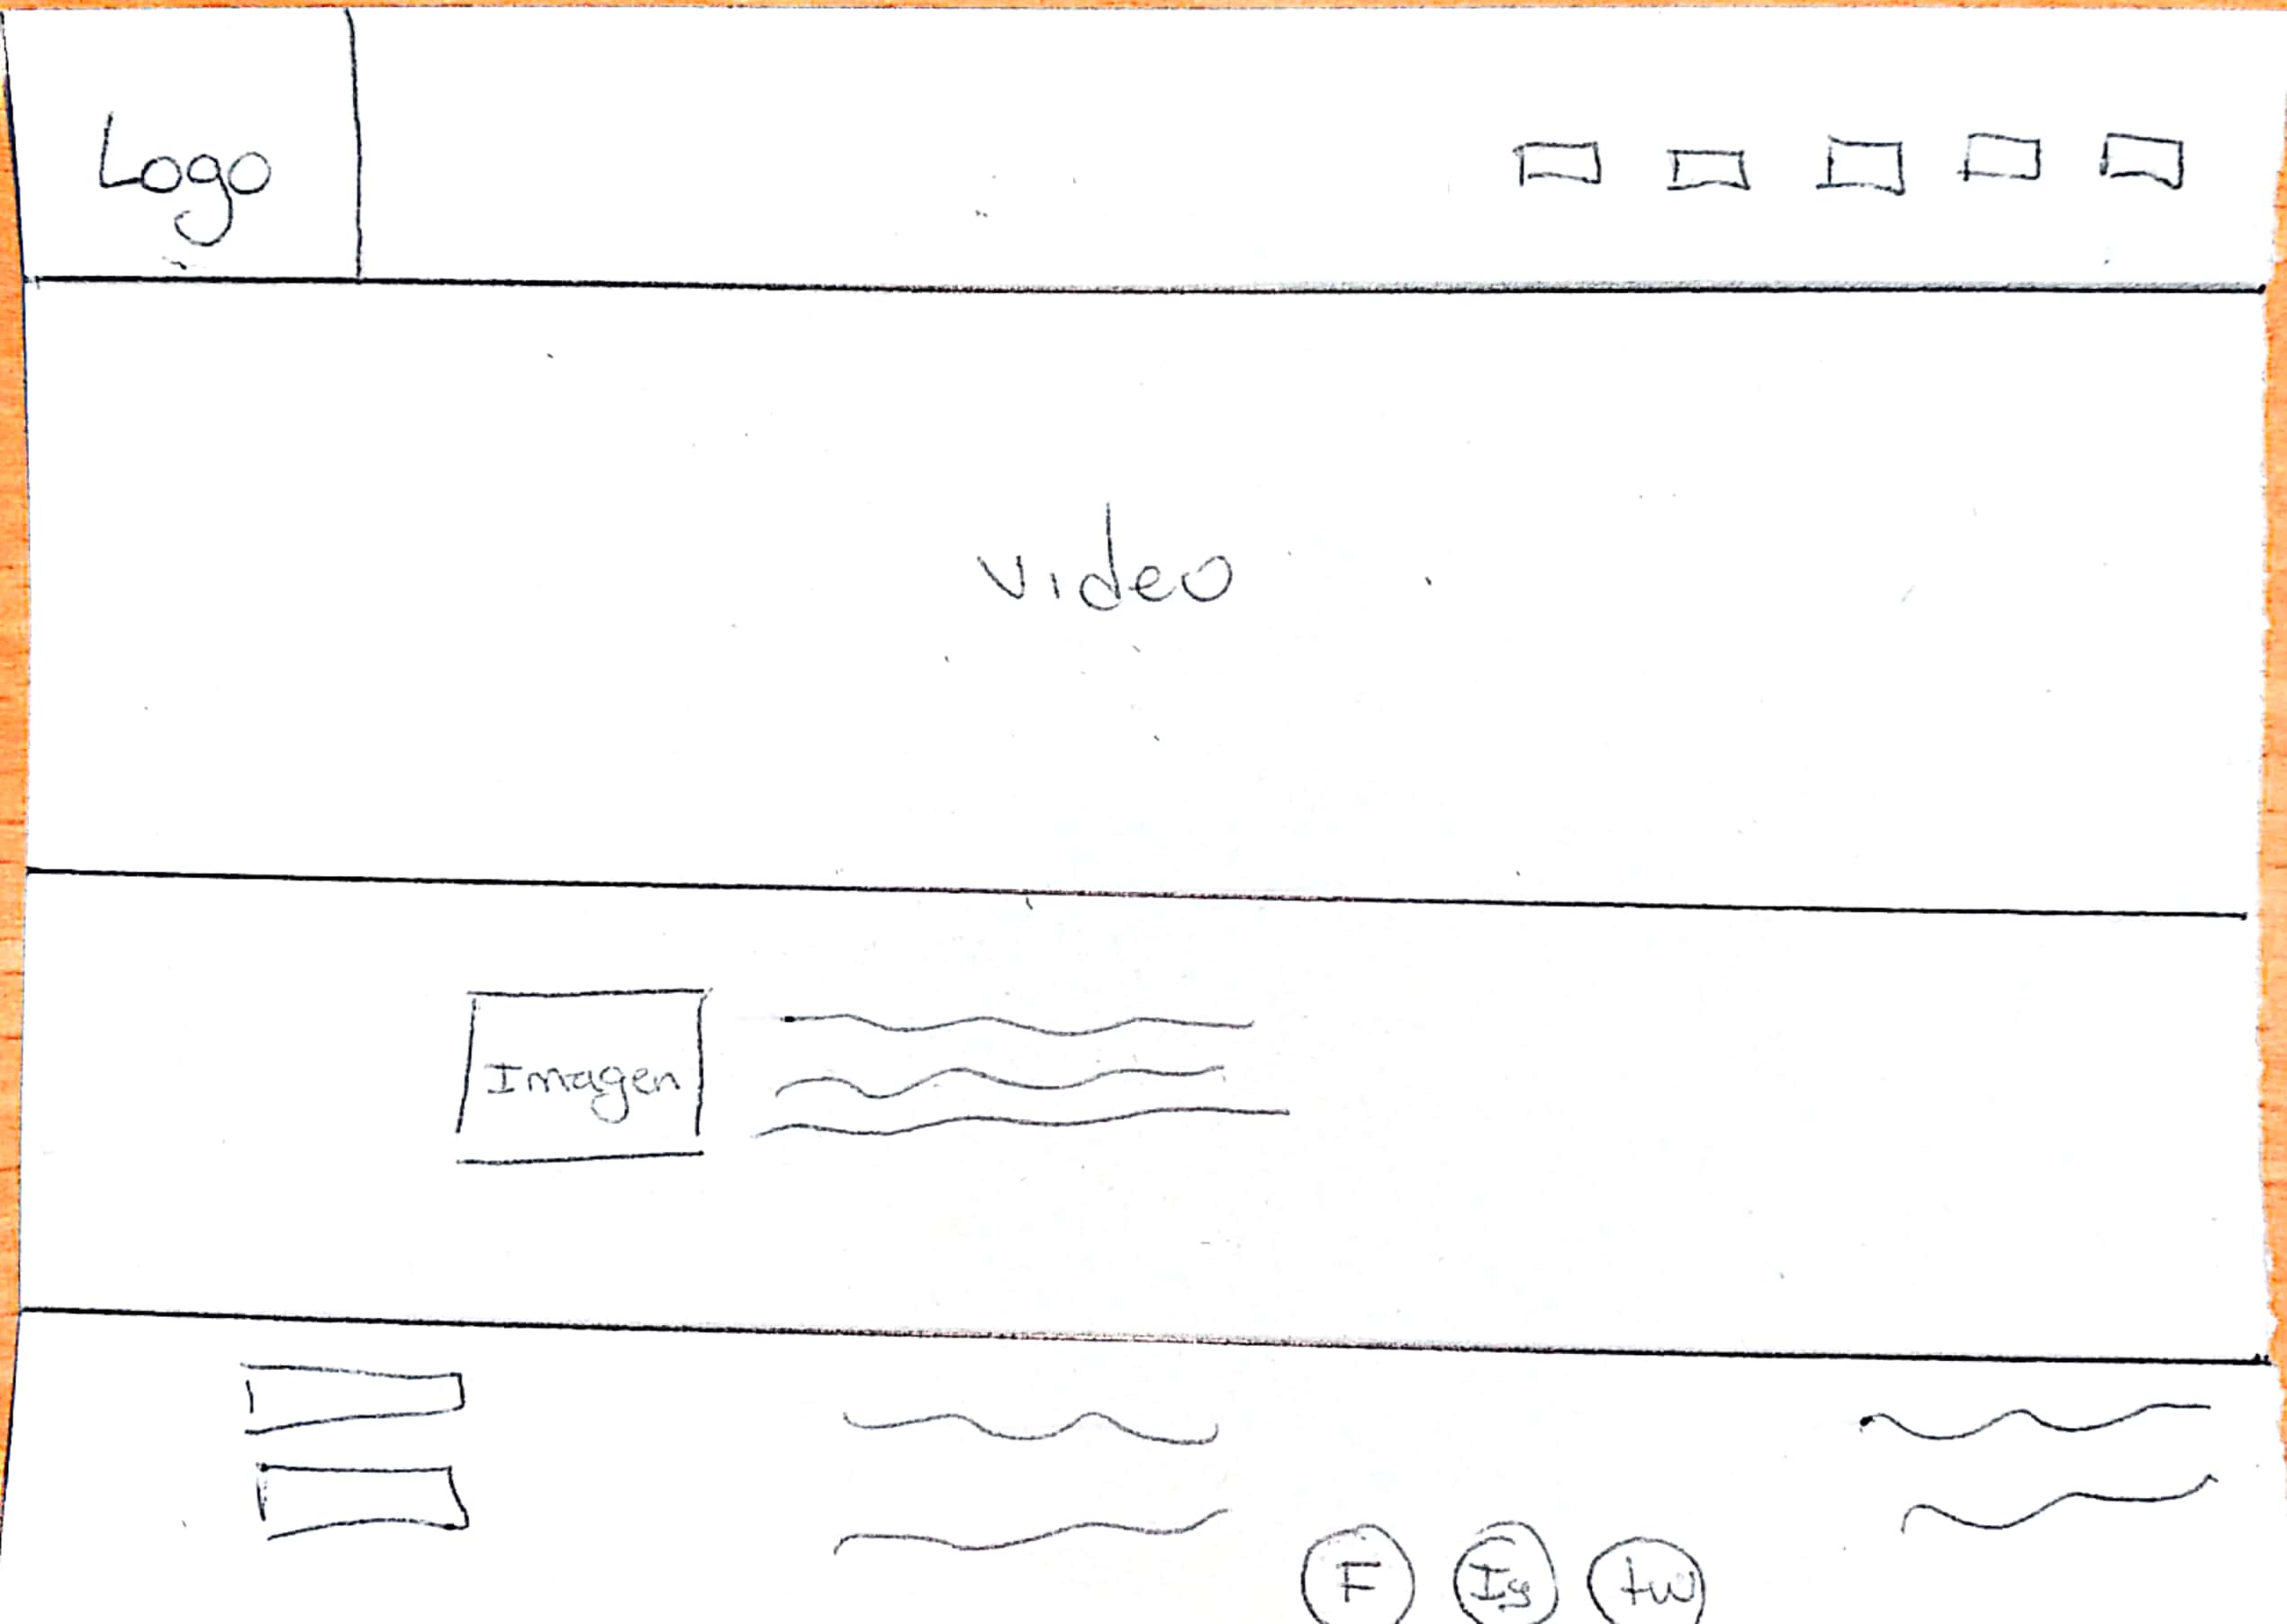 Logo
video
Imagen
F Ig tw